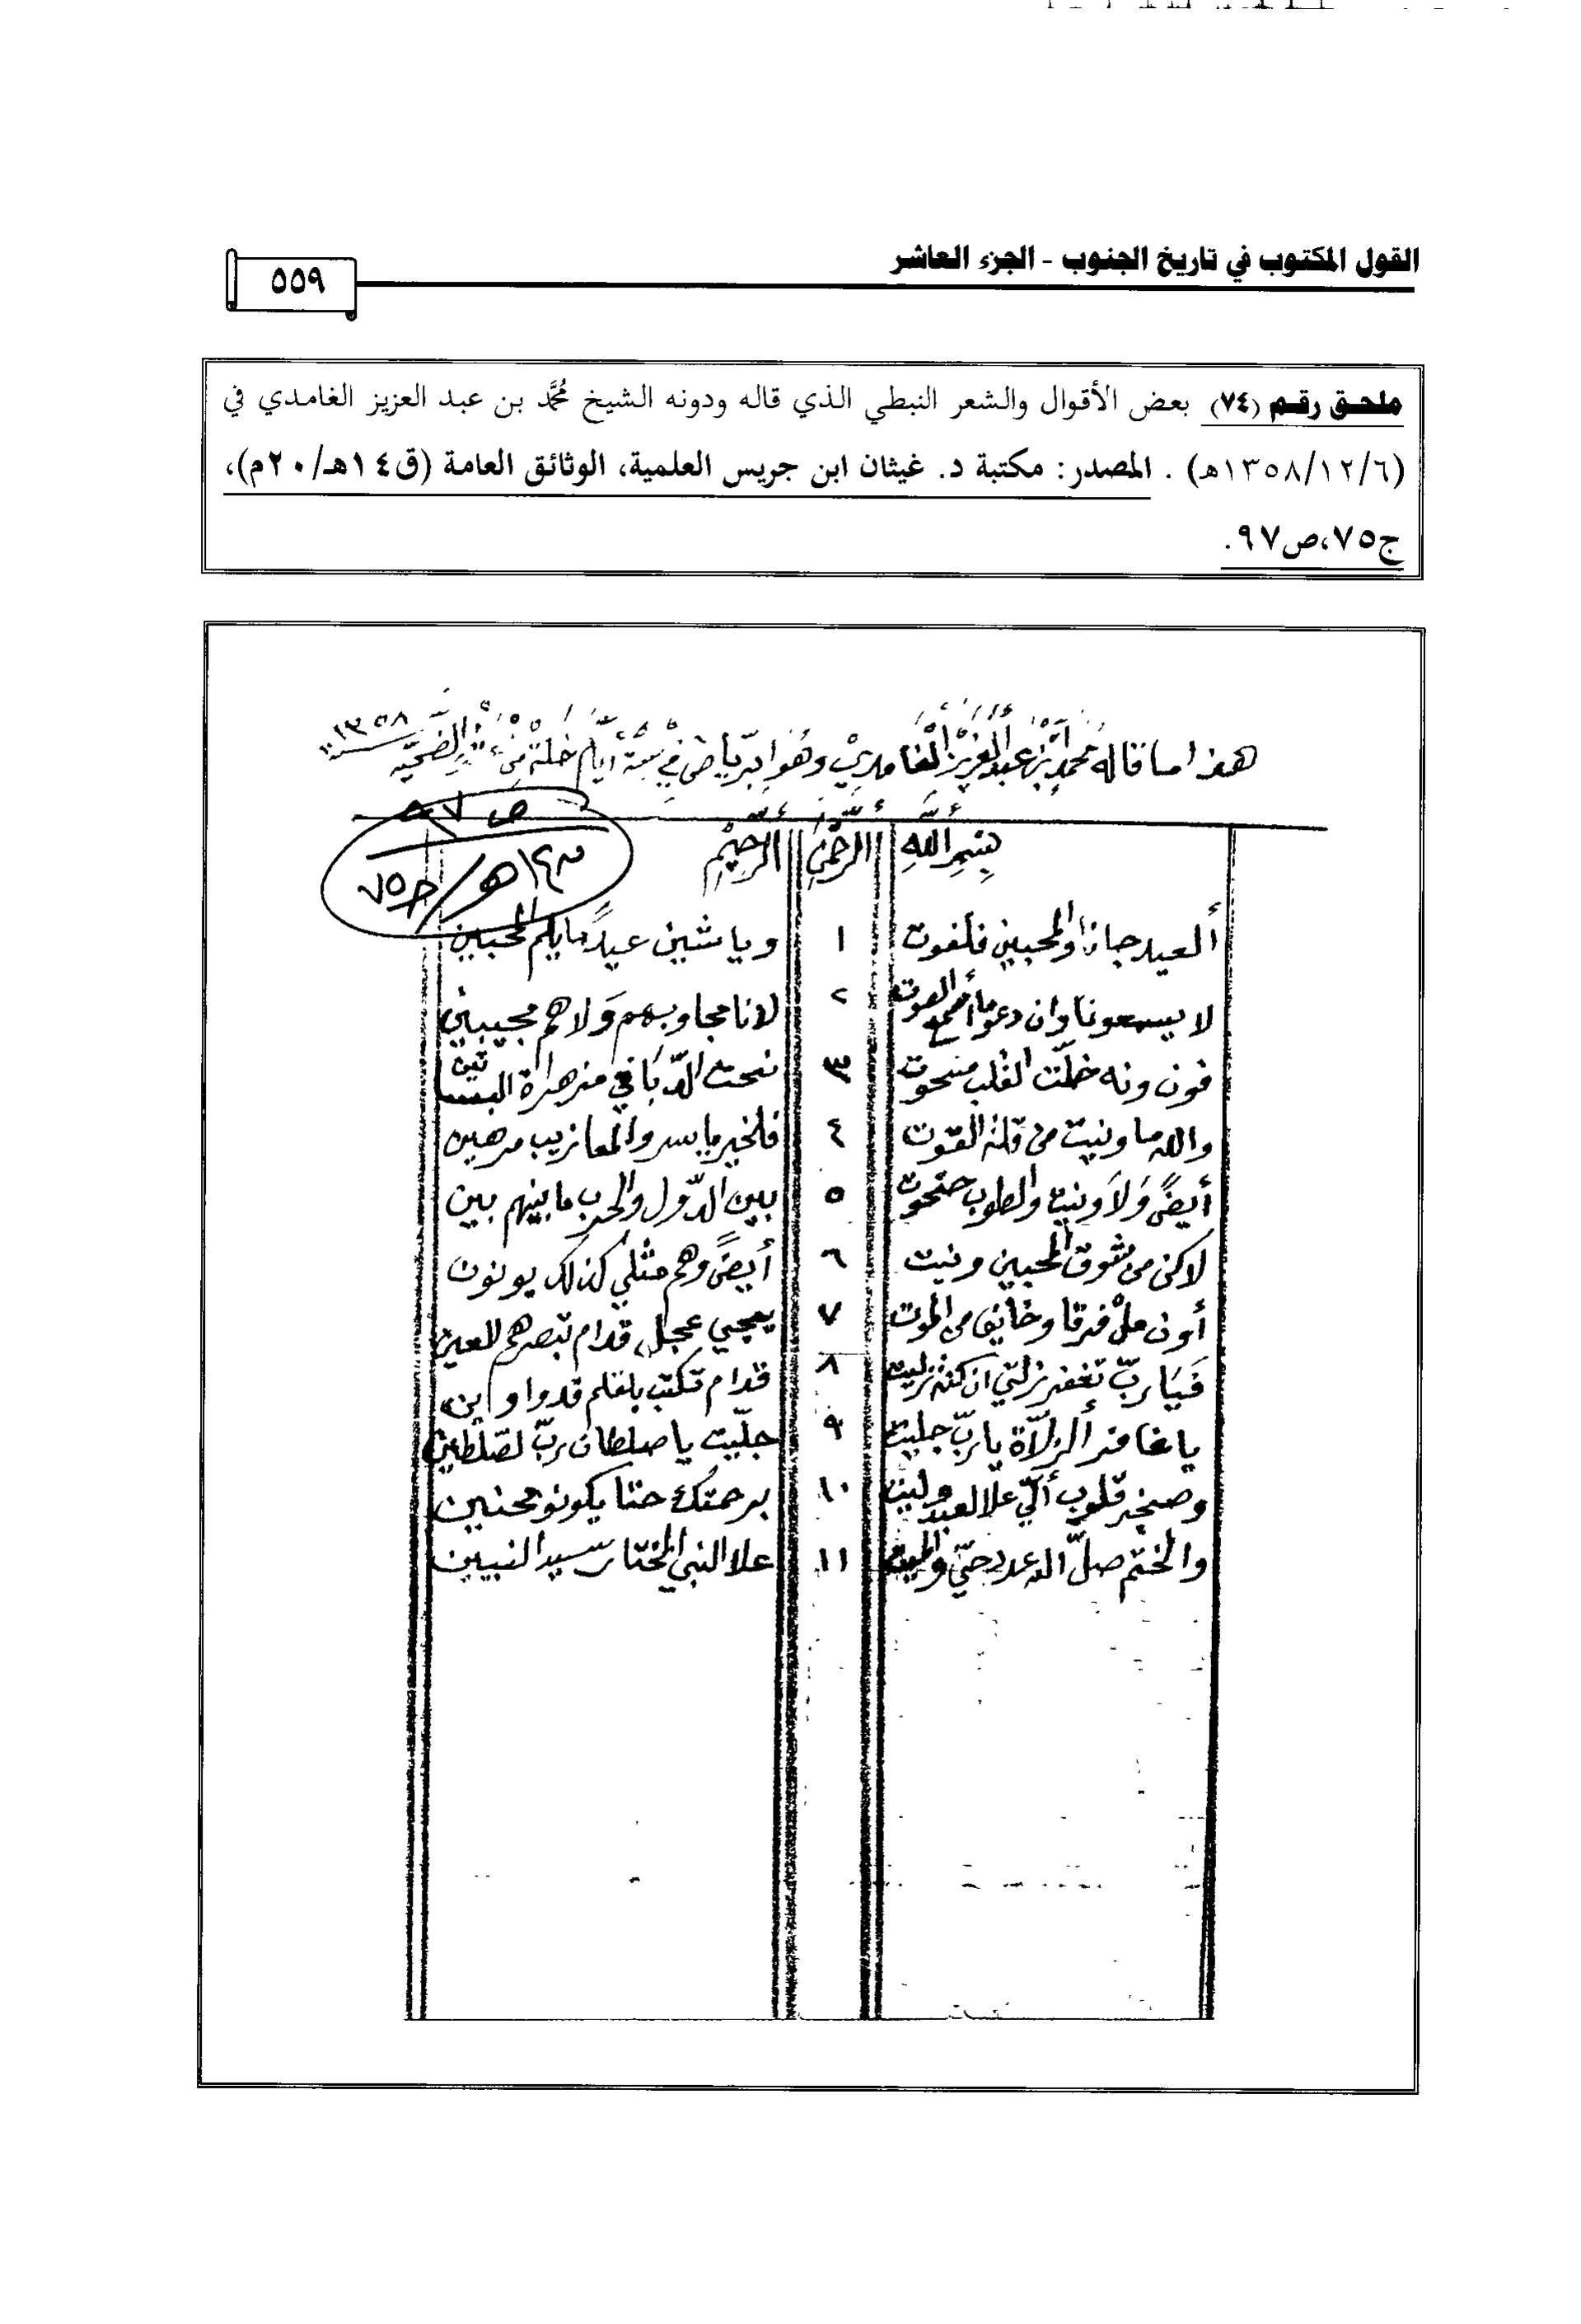 القول المكتوب في تاريخ الجنوب - الجزء العاشر
٥٥٩
ملحق رقم (٧٤) بعض الأقوال والشعر النبطي الذي قاله ودونه الشيخ مُحمَّد بن عبد العزيز الغامدي في
(١٣٥٨/١٢/٦هـ) . المصدر: مكتبة د. غيثان ابن جريس العلمية، الوثائق العامة (ق١٤هـ/٢٠م)،
ج٧٥،ص٩٧.
هذا ما قاله محمد ابْن عبد العزيز الغامدي وهو ابرّياض في ستة أيّام خلة من الضحيّه سنة ١٣٥٨
ص ٩٧
ق١٤هـ/ج٧٥
بِسْمِ اللَّهِ الرَّحْمَنِ الرَّحِيْمِ
ألعيد جانا والمحبين فلغوت ١ ويا شين عيدًا ما يلم المحبين
لا يسمعونا وان دعو ما أسمع الصوت ٢ لانا مجاوبهم وَلا هم مجيبين
فون ونه خلّت القلب منحوت ٣ نحت الدّبا في زهرة البساتين
والله ما ونيت من قلة القوت ٤ فلخير يا سر والمعازيب مرهين
أيضًا وَلا ونيت والطوب حنحوت ٥ بين الدّول والحرب ما بينهم بين
لاكن من شوق المحبين ونيت ٦ أيضًا وهم مثلي كذلك يونون
أون علْ فرقا وخايف من الموت ٧ يجي عجل قدام تبصرهم العين
فَيَا ربّ تغفر زلتي ان كنة زليت ٨ قدام تكتب بلقلم فدواوين
يا غافر ألزلاّة يا ربّ جليت ٩ جلّيت يا صلطان ربّ لصلطين
وصخر قلوب ألّي علا لعبد ولين ١٠ برحمتك حتا يكونو محنين
والختم صلّ الله عدد حيّ والميت ١١ علا النبي المختار سيد النبيين